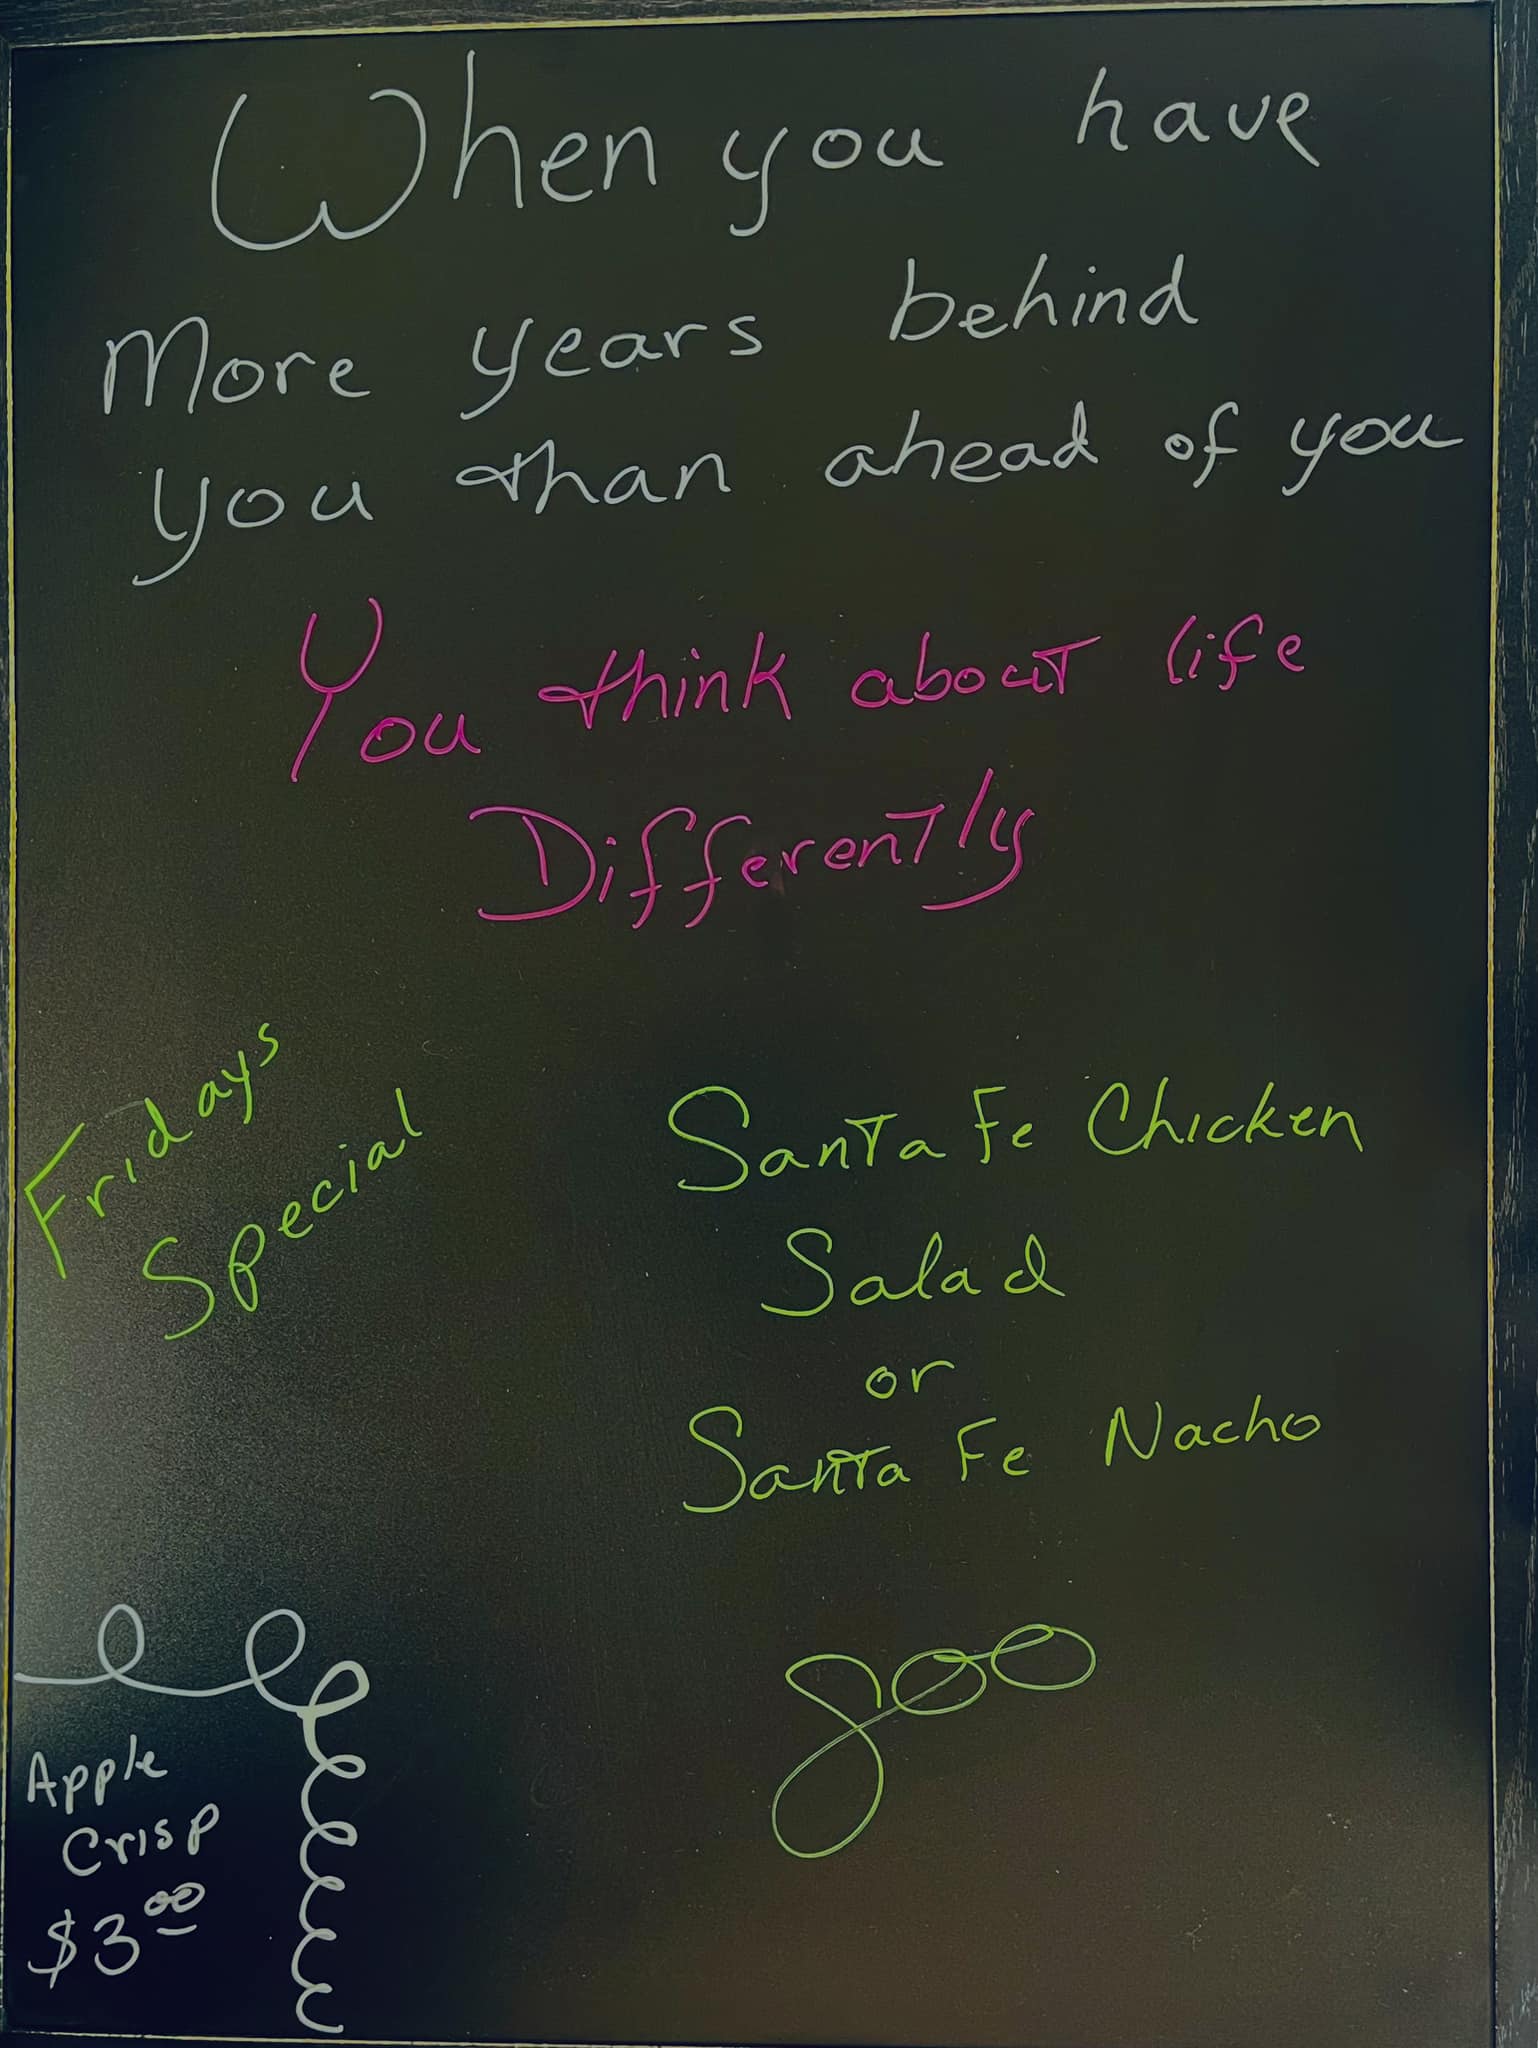 When you have
More years behind
you than ahead of you
You think about life
Differently
Fridays
Special
Santa Fe Chicken
Salad
or
Santa Fe Nacho
800
Apple
Crisp
$3.00